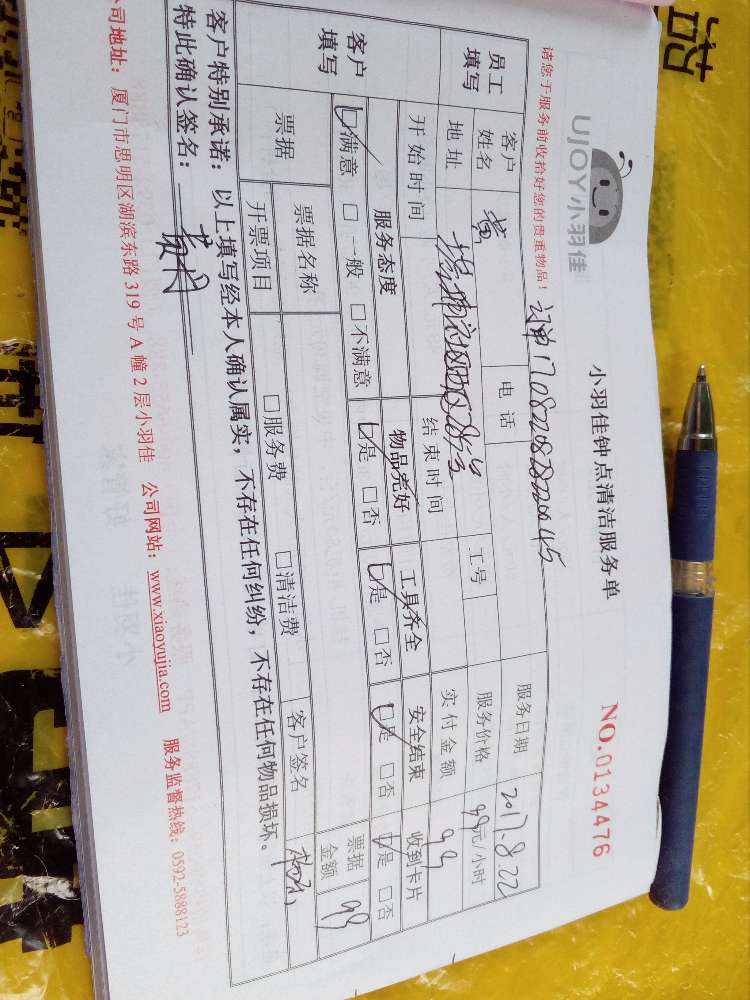 UJOY小羽佳
小羽佳钟点清洁服务单
NO.0134476
请您于服务前收拾好您的贵重物品!
服务日期 2017.8.22
员工填写
客户姓名 黄
电话
工号
服务价格 99元/小时
地址
实付金额 99
开始时间
结束时间
客户填写
服务态度 物品完好 工具齐全 安全结束 收到卡片
☑满意 □一般 □不满意 ☑是 □否 ☑是 □否 ☑是 □否 ☑是 □否
票据
票据名称
客户签名
票据金额 99
开票项目 □服务费 □清洁费
客户特别承诺:以上填写经本人确认属实,不存在任何纠纷,不存在任何物品损坏。
特此确认签名:
公司地址:厦门市思明区湖滨东路319号A幢2层小羽佳 公司网站:www.xiaoyujia.com 服务监督热线:0592-5888123